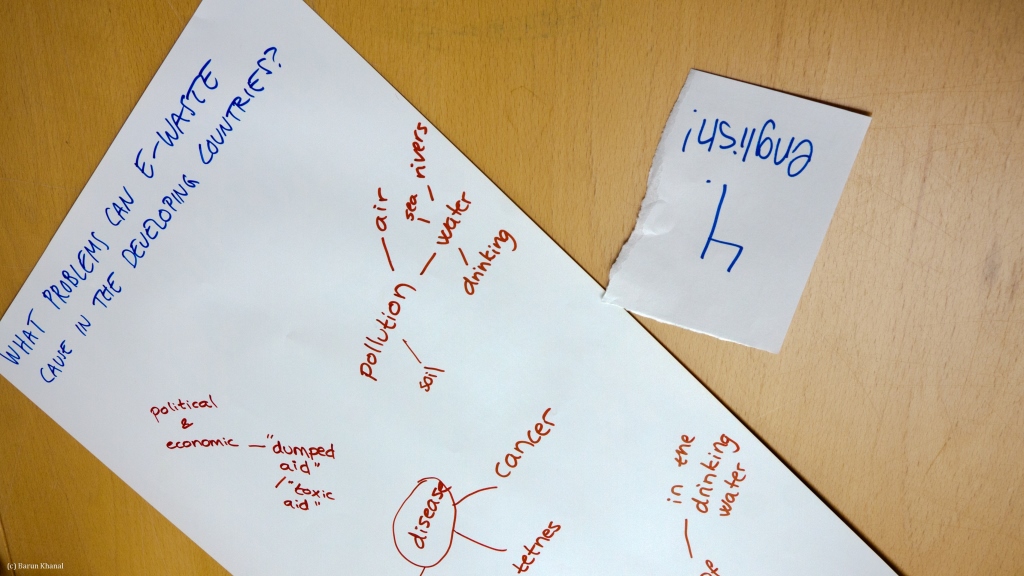 WHAT PROBLEMS CAN E-WASTE
CAUSE IN THE DEVELOPING COUNTRIES?
air
sea
rivers
water
drinking
pollution
soil
political
&
economic — "dumped
aid"
/"toxic
aid"
disease
cancer
tetnes
in the
drinking
water
4.
english!
(c) Barun Khanal